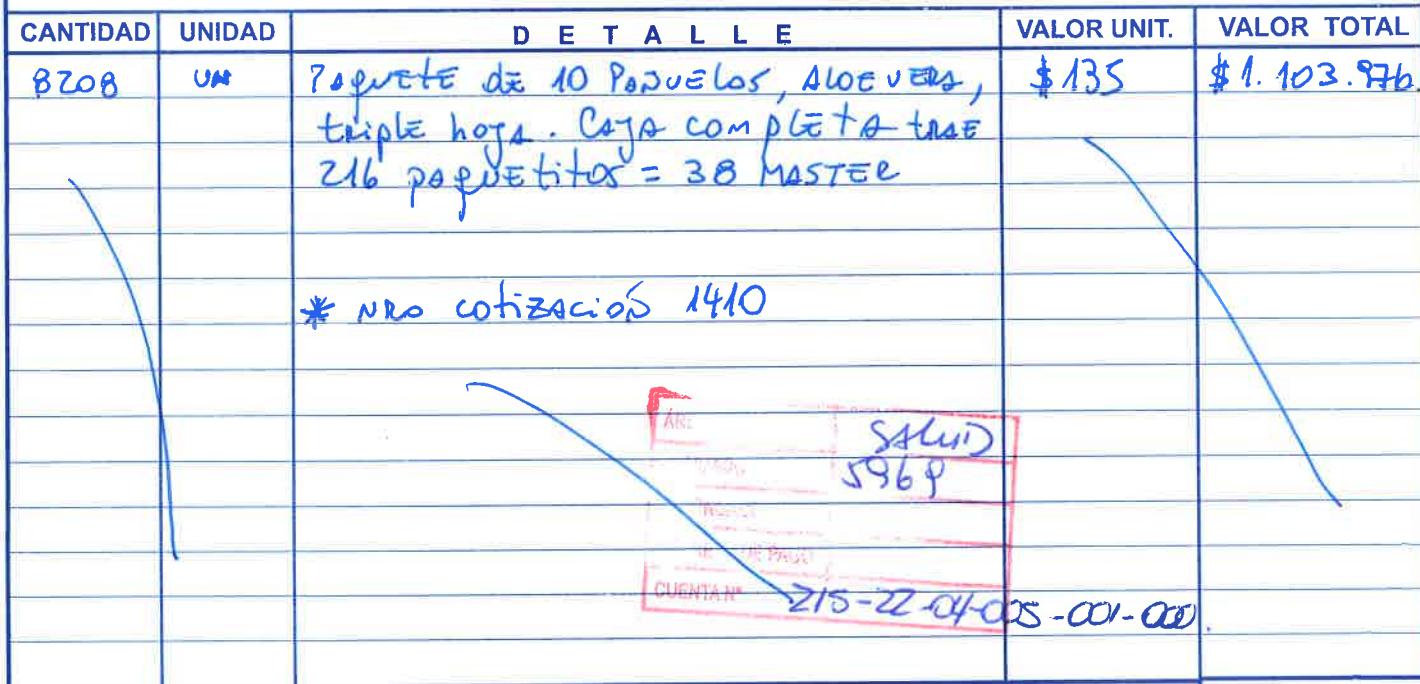 CANTIDAD UNIDAD DETALLE VALOR UNIT. VALOR TOTAL
8208 UN Paquete de 10 Pañuelos, Aloe vera, $135 $1.103.976.
triple hoja. Caja completa trae
216 paquetitos = 38 MASTER
* NRO cotización 1410
SALUD
5969
DE PAGO
CUENTA Nº 215-22-04-005-001-000.